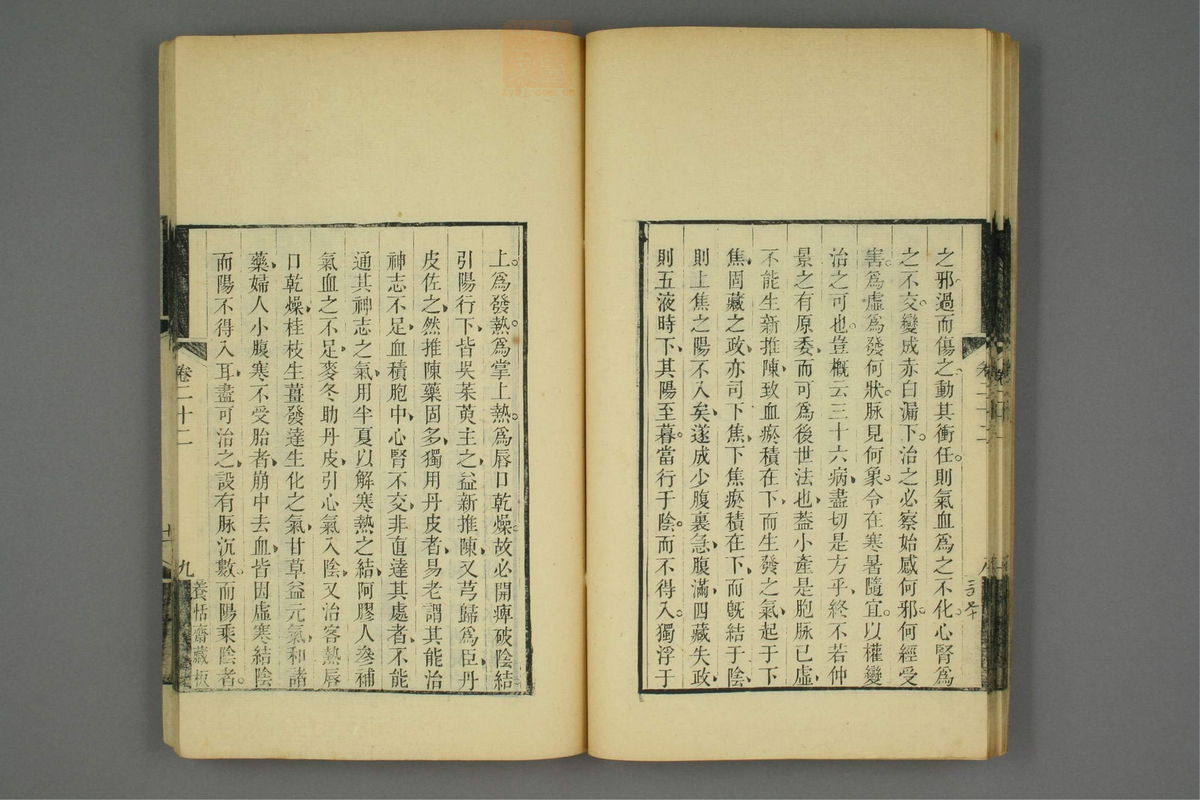 之邪過而傷之動其衝任則氣血爲之不化心腎爲
之不交變成赤白漏下治之必察始感何邪何經受
害爲虛爲發何狀脉見何象令在寒暑隨宜以權變
治之可也豈概云三十六病盡切是方乎終不若仲
景之有原委而可爲後世法也蓋小產是胞脉已虛
不能生新推陳致血瘀積在下而生發之氣起于下
焦固藏之政亦司下焦下焦瘀積在下而旣結于陰
則上焦之陽不入矣遂成少腹裏急腹滿四藏失政
則五液時下其陽至暮當行于陰而不得入獨浮于
卷二十二
八
上爲發熱爲掌上熱爲唇口乾燥故必開痺破陰結
引陽行下皆吳茱萸主之益新推陳又芎歸爲臣丹
皮佐之然推陳藥固多獨用丹皮者易老謂其能治
神志不足血積胞中心腎不交非直達其處者不能
通其神志之氣用半夏以解寒熱之結阿膠人參補
氣血之不足麥冬助丹皮引心氣入陰又治客熱唇
口乾燥桂枝生薑發達生化之氣甘草益元氣和諸
藥婦人小腹寒不受胎者崩中去血皆因虛寒結陰
而陽不得入耳盡可治之設有脉沉數而陽乘陰者
卷二十二
九
養恬齋藏板